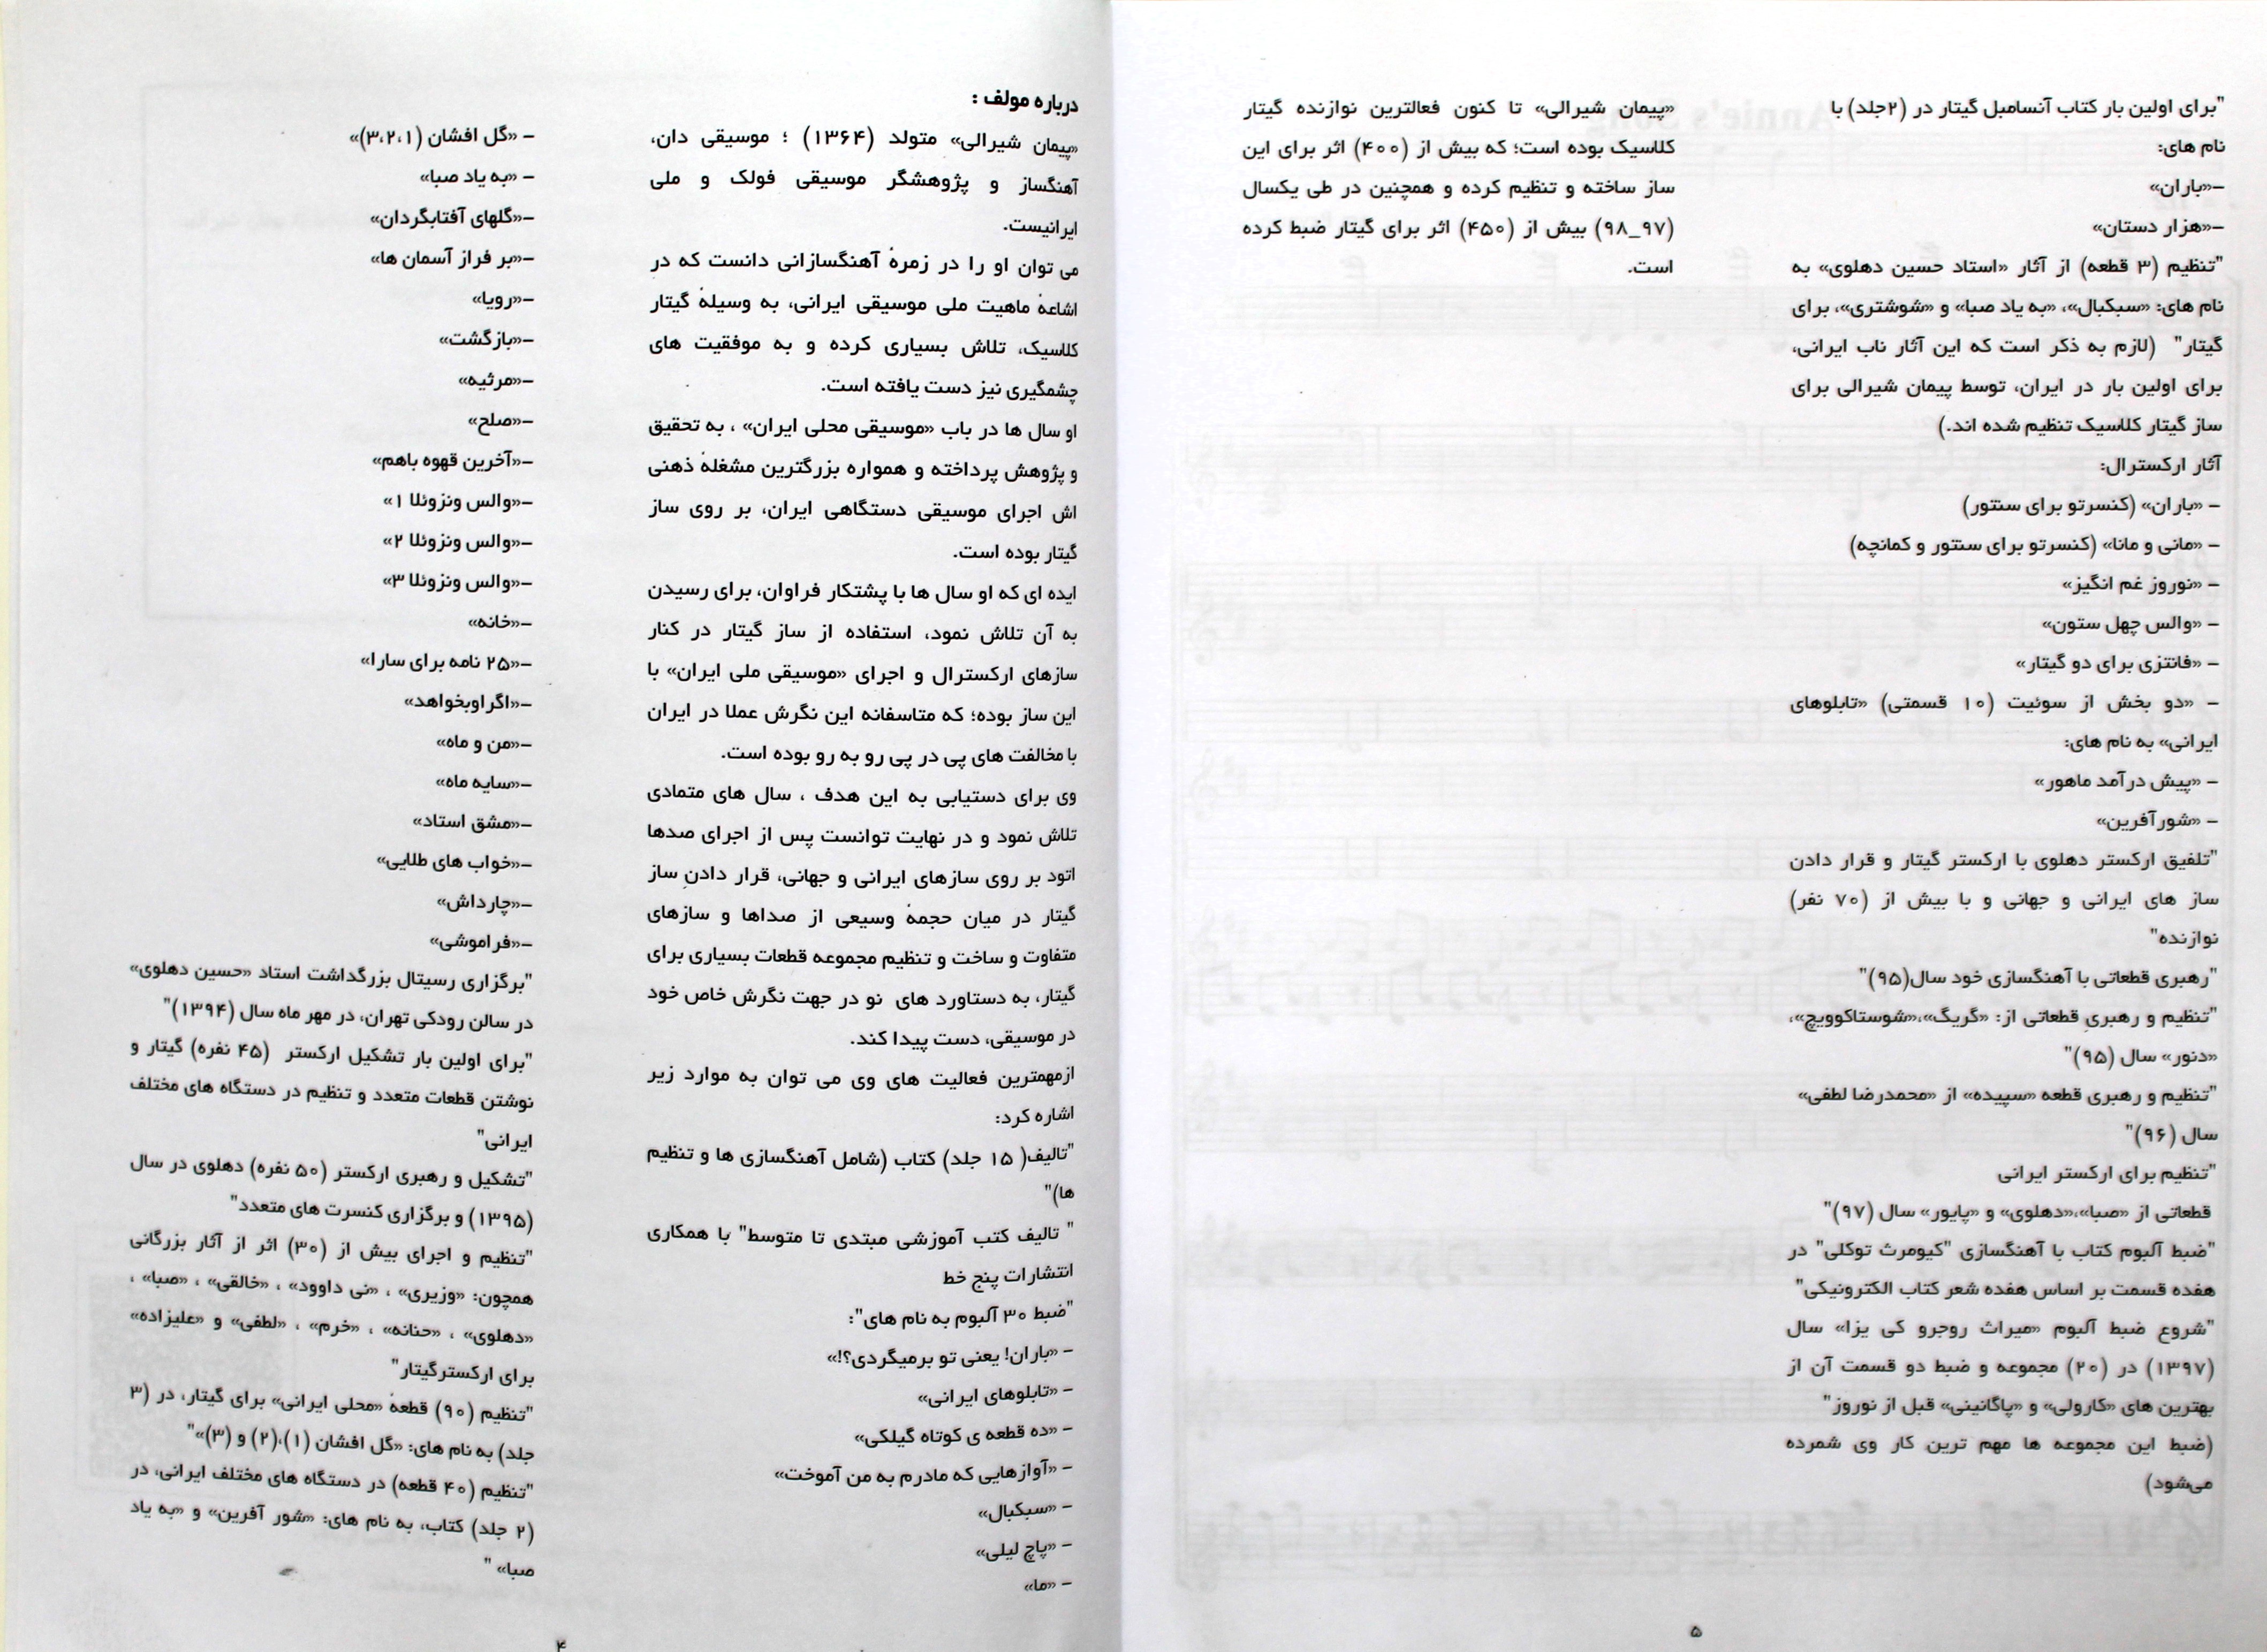 درباره مولف :
«پیمان شیرالی» متولد (۱۳۶۴) ؛ موسیقی دان،
آهنگساز و پژوهشگر موسیقی فولک و ملی
ایرانیست.
می توان او را در زمرهٔ آهنگسازانی دانست که در
اشاعهٔ ماهیت ملی موسیقی ایرانی، به وسیلهٔ گیتار
کلاسیک، تلاش بسیاری کرده و به موفقیت های
چشمگیری نیز دست یافته است.
او سال ها در باب «موسیقی محلی ایران» ، به تحقیق
و پژوهش پرداخته و همواره بزرگترین مشغلهٔ ذهنی
اش اجرای موسیقی دستگاهی ایران، بر روی ساز
گیتار بوده است.
ایده ای که او سال ها با پشتکار فراوان، برای رسیدن
به آن تلاش نمود، استفاده از ساز گیتار در کنار
سازهای ارکسترال و اجرای «موسیقی ملی ایران» با
این ساز بوده؛ که متاسفانه این نگرش عملا در ایران
با مخالفت های پی در پی رو به رو بوده است.
وی برای دستیابی به این هدف ، سال های متمادی
تلاش نمود و در نهایت توانست پس از اجرای صدها
اتود بر روی سازهای ایرانی و جهانی، قرار دادنِ ساز
گیتار در میان حجمهٔ وسیعی از صداها و سازهای
متفاوت و ساخت و تنظیم مجموعه قطعات بسیاری برای
گیتار، به دستاورد های نو در جهت نگرش خاص خود
در موسیقی، دست پیدا کند.
ازمهمترین فعالیت های وی می توان به موارد زیر
اشاره کرد:
"تالیف( ۱۵ جلد) کتاب (شامل آهنگسازی ها و تنظیم
ها)"
" تالیف کتب آموزشی مبتدی تا متوسط" با همکاری
انتشارات پنج خط
"ضبط ۳۰ آلبوم به نام های":
– «باران! یعنی تو برمیگردی؟!»
– «تابلوهای ایرانی»
– «ده قطعه ی کوتاه گیلکی»
– «آوازهایی که مادرم به من آموخت»
– «سبکبال»
– «پاچ لیلی»
– «ما»
– «گل افشان (۳،۲،۱)»
– «به یاد صبا»
–«گلهای آفتابگردان»
–«بر فراز آسمان ها»
–«رویا»
–«بازگشت»
–«مرثیه»
–«صلح»
–«آخرین قهوه باهم»
–«والس ونزوئلا ۱»
–«والس ونزوئلا ۲»
–«والس ونزوئلا ۳»
–«خانه»
–«۲۵ نامه برای سارا»
–«اگراوبخواهد»
–«من و ماه»
–«سایه ماه»
–«مشق استاد»
–«خواب های طلایی»
–«چارداش»
–«فراموشی»
"برگزاری رسیتال بزرگداشت استاد «حسین دهلوی»
در سالن رودکی تهران، در مهر ماه سال (۱۳۹۴)"
"برای اولین بار تشکیل ارکستر (۴۵ نفره) گیتار و
نوشتن قطعات متعدد و تنظیم در دستگاه های مختلف
ایرانی"
"تشکیل و رهبری ارکستر (۵۰ نفره) دهلوی در سال
(۱۳۹۵) و برگزاری کنسرت های متعدد"
"تنظیم و اجرای بیش از (۳۰) اثر از آثار بزرگانی
همچون: «وزیری» ، «نی داوود» ، «خالقی» ، «صبا» ،
«دهلوی» ، «حنانه» ، «خرم» ، «لطفی» و «علیزاده»
برای ارکسترگیتار"
"تنظیم (۹۰) قطعهٔ «محلی ایرانی» برای گیتار، در (۳
جلد) به نام های: «گل افشان (۱)،(۲) و (۳)»"
"تنظیم (۴۰ قطعه) در دستگاه های مختلف ایرانی، در
(۲ جلد) کتاب، به نام های: «شور آفرین» و «به یاد
صبا» "
۴
"برای اولین بار کتاب آنسامبل گیتار در (۲جلد) با
نام های:
–«باران»
–«هزار دستان»
"تنظیم (۳ قطعه) از آثار «استاد حسین دهلوی» به
نام های: «سبکبال»، «به یاد صبا» و «شوشتری»، برای
گیتار" (لازم به ذکر است که این آثار ناب ایرانی،
برای اولین بار در ایران، توسط پیمان شیرالی برای
ساز گیتار کلاسیک تنظیم شده اند.)
آثار ارکسترال:
– «باران» (کنسرتو برای سنتور)
– «مانی و مانا» (کنسرتو برای سنتور و کمانچه)
– «نوروز غم انگیز»
– «والس چهل ستون»
– «فانتزی برای دو گیتار»
– «دو بخش از سوئیت (۱۰ قسمتی) «تابلوهای
ایرانی» به نام های:
– «پیش درآمد ماهور»
– «شورآفرین»
"تلفیق ارکستر دهلوی با ارکستر گیتار و قرار دادن
ساز های ایرانی و جهانی و با بیش از (۷۰ نفر)
نوازنده"
"رهبری قطعاتی با آهنگسازی خود سال(۹۵)"
"تنظیم و رهبریِ قطعاتی از: «گریگ»،«شوستاکوویچ»،
«دنور» سال (۹۵)"
"تنظیم و رهبری قطعه «سپیده» از «محمدرضا لطفی»
سال (۹۶)"
"تنظیم برای ارکستر ایرانی
قطعاتی از «صبا»،«دهلوی» و «پایور» سال (۹۷)"
"ضبط آلبوم کتاب با آهنگسازی "کیومرث توکلی" در
هفده قسمت بر اساس هفده شعر کتاب الکترونیکی"
"شروع ضبط آلبوم «میراث روجرو کی یزا» سال
(۱۳۹۷) در (۲۰) مجموعه و ضبط دو قسمت آن از
بهترین های «کارولی» و «پاگانینی» قبل از نوروز"
(ضبط این مجموعه ها مهم ترین کار وی شمرده
می‌شود)
«پیمان شیرالی» تا کنون فعالترین نوازنده گیتار
کلاسیک بوده است؛ که بیش از (۴۰۰) اثر برای این
ساز ساخته و تنظیم کرده و همچنین در طی یکسال
(۹۷_۹۸) بیش از (۴۵۰) اثر برای گیتار ضبط کرده
است.
۵